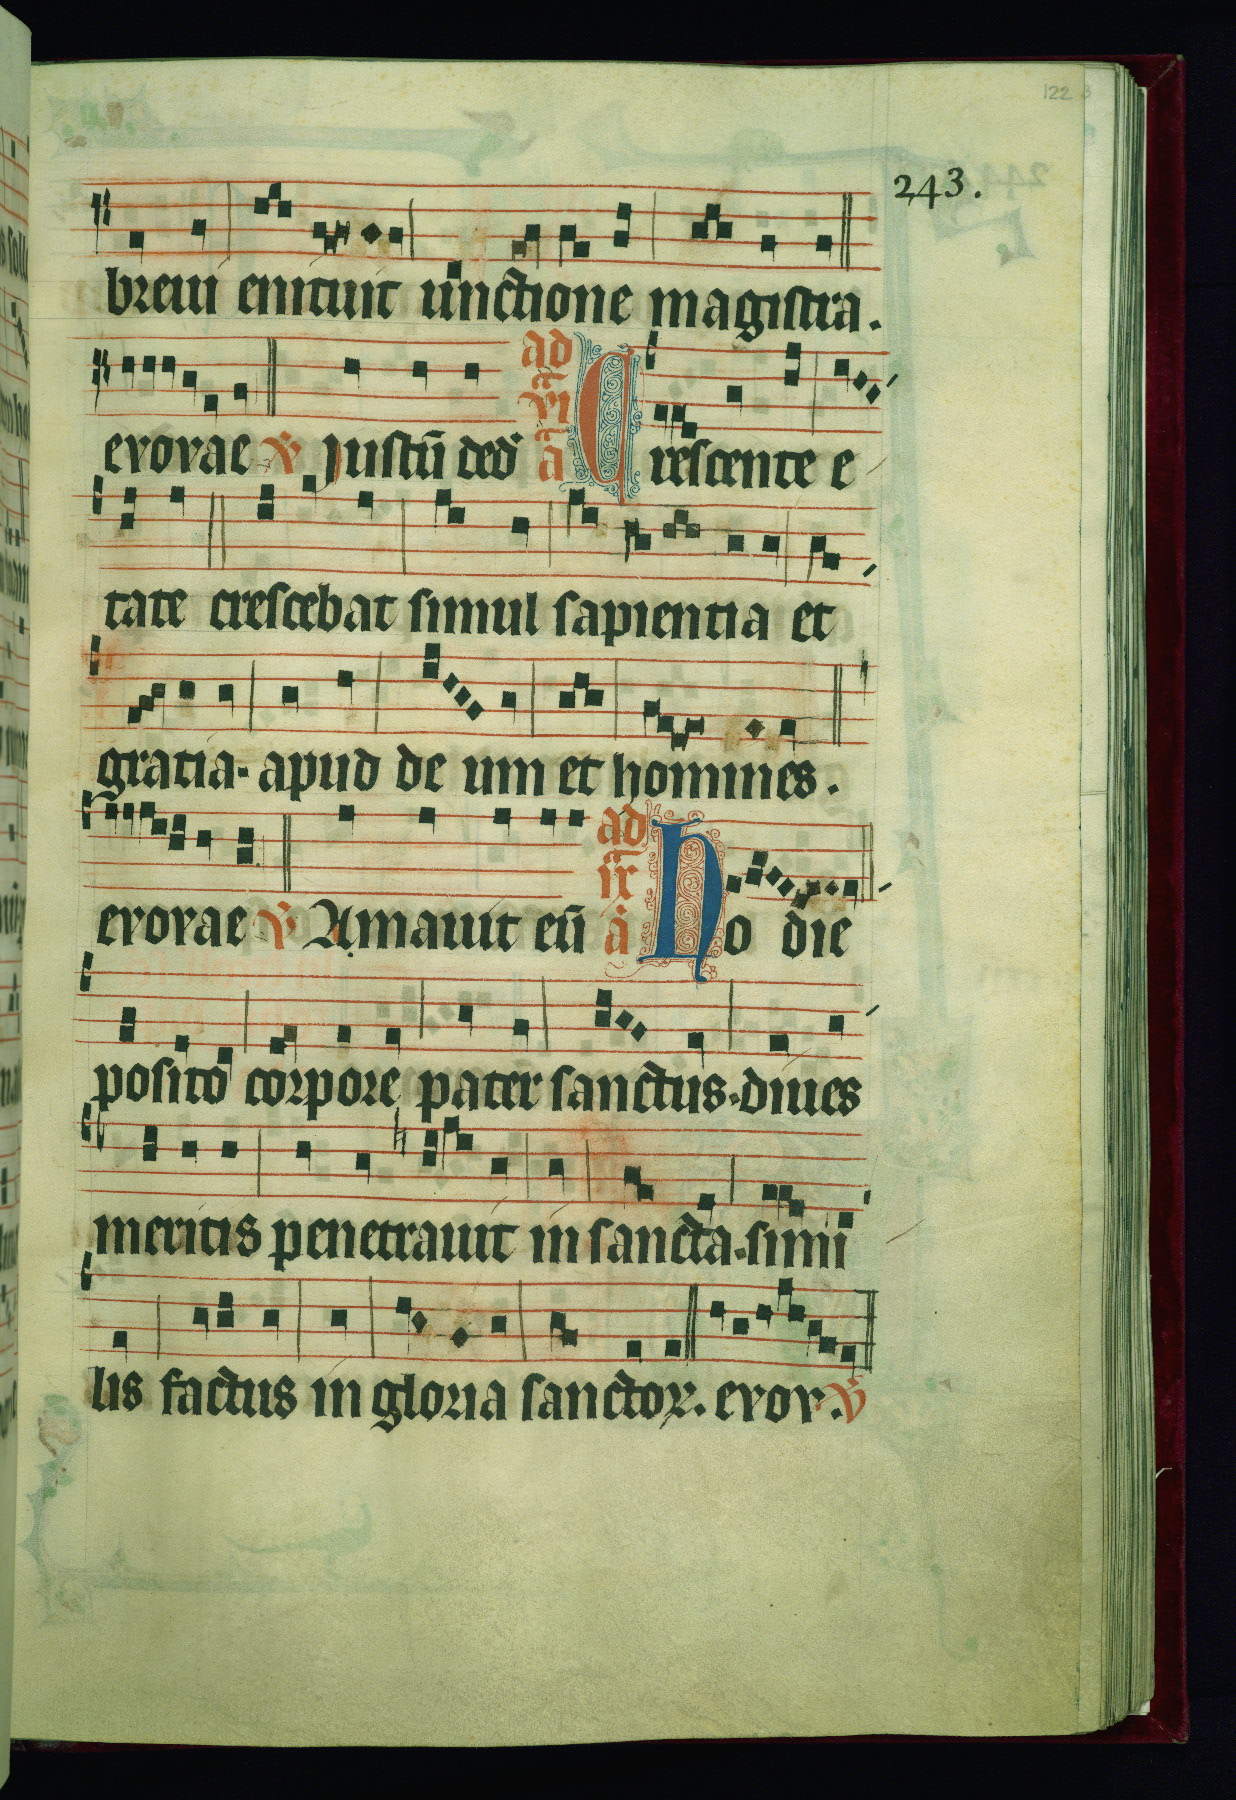 122 3
243.
breui enituit unctione magistra.
evovae ℣ Justū ded̄ ad vi ā Crescente e
tate crescebat simul sapientia et
gratia. apud de um et homines.
evovae ℣ Amauit eū ad ix ā Ho die
posito corpore pater sanctus. diues
meritis penetrauit in sancta. simi
lis factus in gloria sanctoꝝ. evov. ℣